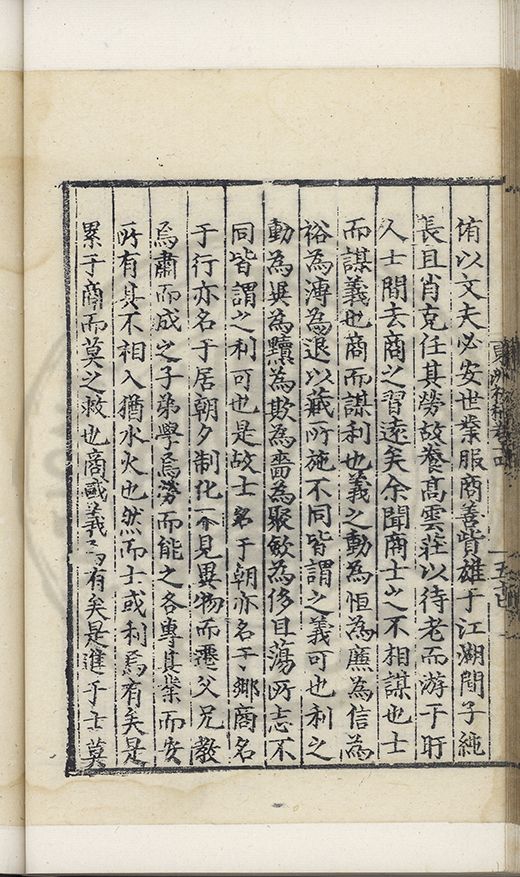 侑以文夫必安世業服商善皆雄于江湖間子繩
長且肖克任其勞故餐髙雲莊以待老而游于盱
人士間去商之習遠矣余聞商士之不相謀也士
而謀義也商而謀利也義之動為恒為廉為信為
裕為溥為退以藏所施不同皆謂之義可也利之
動為巽為黷為欺為嗇為聚斂為侈且蕩所志不
同皆謂之利可也是故士名于朝亦名于鄉商名
于行亦名于居朝夕制化不見異物而遷父兄教
焉肅而成之子弟學焉勞而能之各專其業而安
所有其不相入猶水火也然而士或利焉有矣是
累于商而莫之救也商或義焉有矣是進于士莫